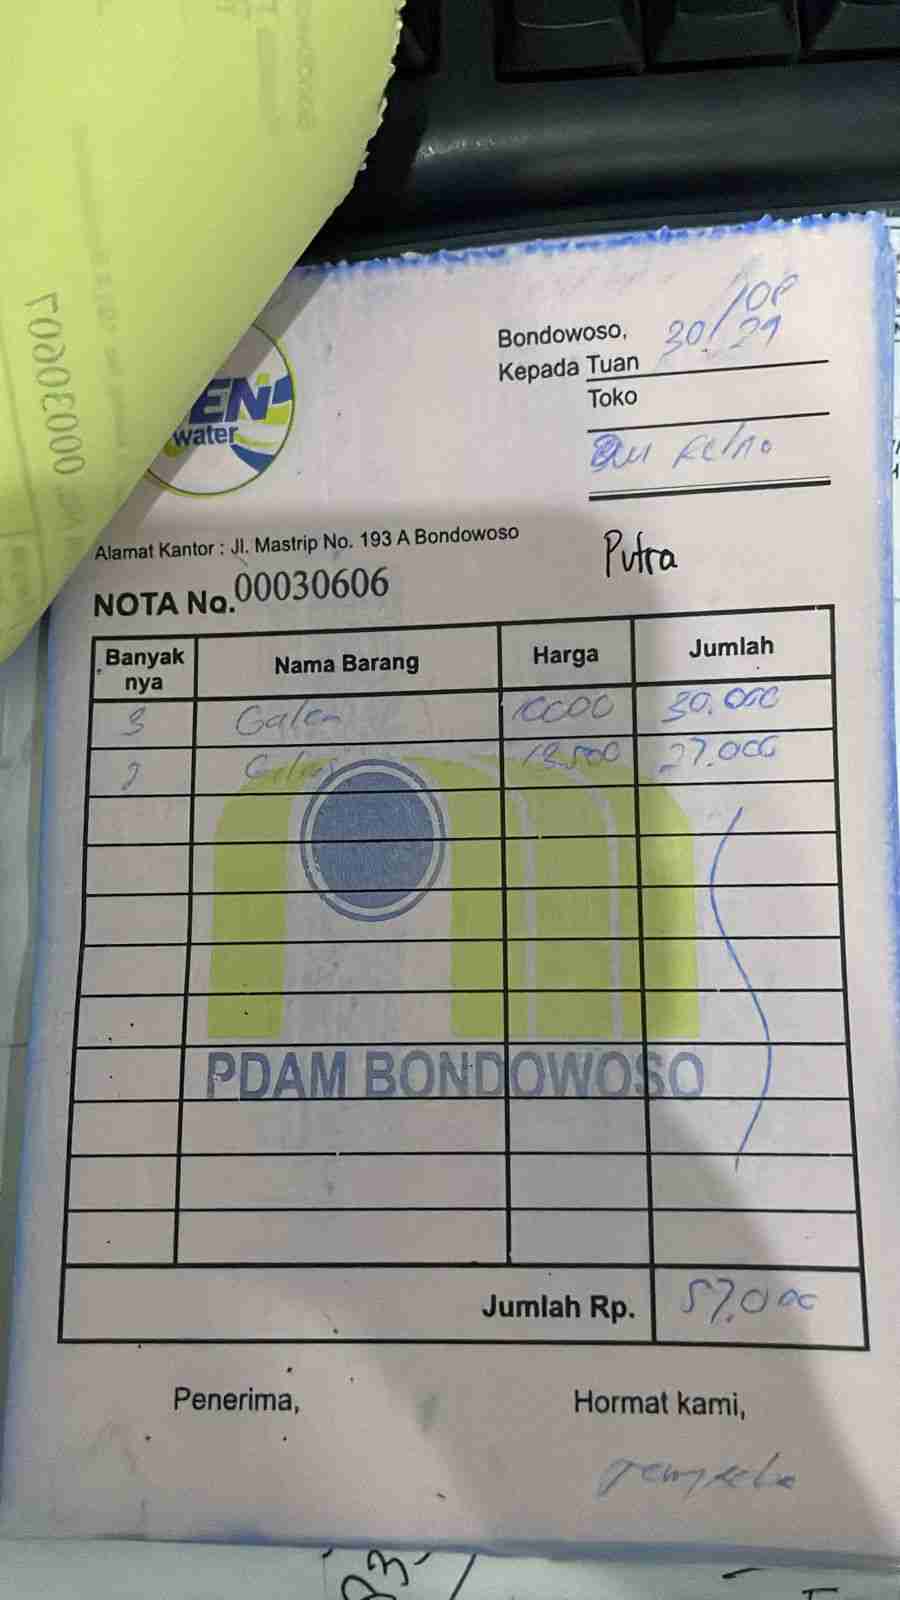 00030607
EN
water
Bondowoso, 30/08/24
Kepada Tuan
Toko
Alamat Kantor : Jl. Mastrip No. 193 A Bondowoso
Putra
NOTA No. 00030606
Banyak nya Nama Barang Harga Jumlah
3 Galon 10000 30.000
2 Gelas 13.500 27.000
PDAM BONDOWOSO
Jumlah Rp. 57.000
Penerima, Hormat kami,